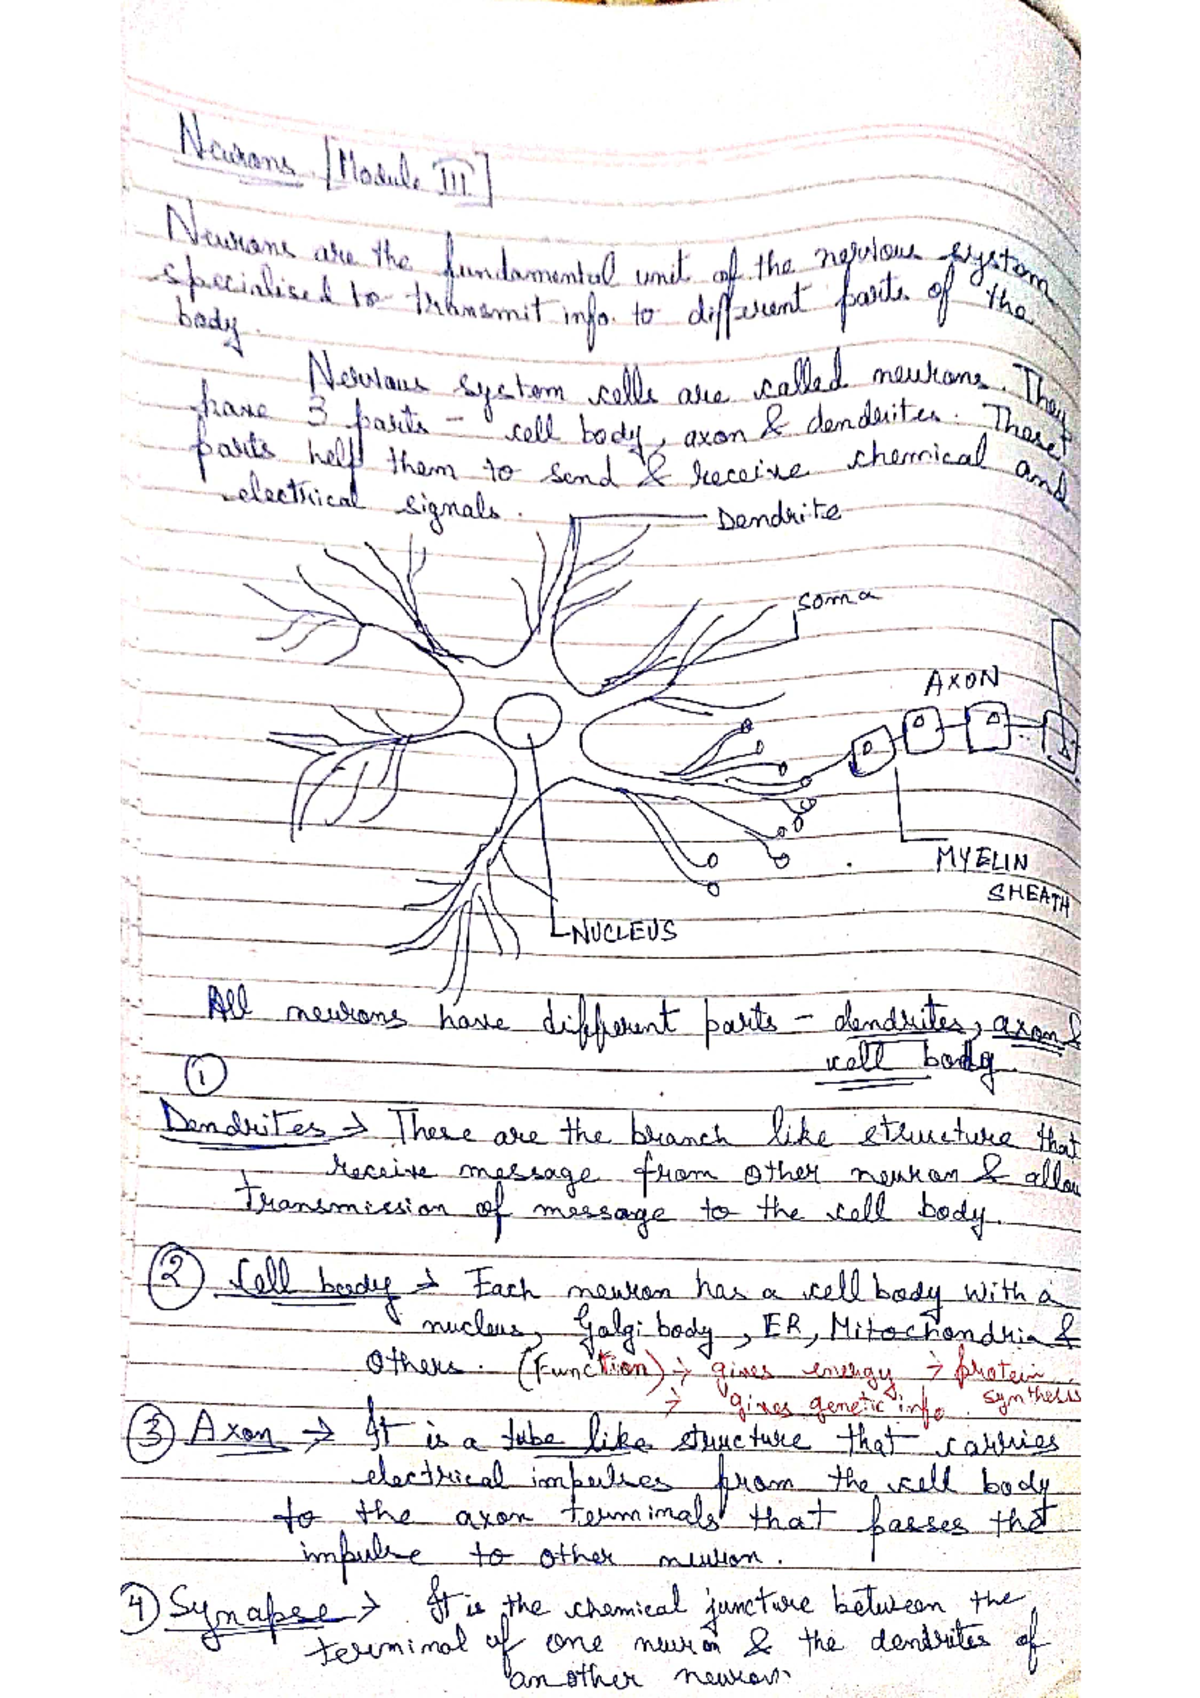 Neurons [Module III]
Neurons are the fundamental unit of the nervous system
specialised to transmit info. to different parts of the
body.
Nervous system cells are called neurons. They
have 3 parts - cell body, axon & dendrites. These
parts help them to send & receive chemical and
electrical signals.
Dendrite
Soma
AXON
MYELIN
SHEATH
NUCLEUS
All neurons have different parts - dendrites, axon &
cell body.
1
Dendrites → These are the branch like structure that
receive message from other neuron & allow
transmission of message to the cell body.
2 Cell body → Each neuron has a cell body with a
nucleus, Golgi body, ER, Mitochondria &
others. (Function) → gives energy → protein
synthesis
→ gives genetic info.
3 Axon → It is a tube like structure that carries
electrical impulses from the cell body
to the axon terminals that passes the
impulse to other neuron.
4 Synapse → It is the chemical juncture between the
terminal of one neuron & the dendrites of
another neuron.